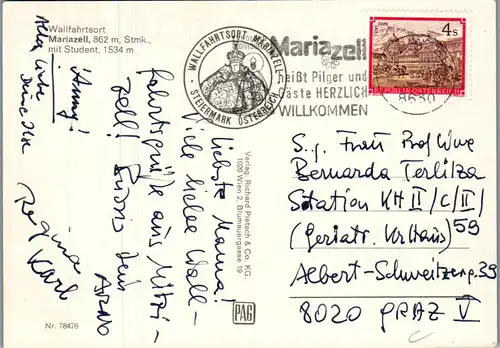 Wallfahrtsort
Mariazell, 862 m, Stmk.,
mit Student, 1534 m
WALLFAHRTSORT MARIAZELL
STEIERMARK ÖSTERREICH
Mariazell
heißt Pilger und
Gäste HERZLICH
WILLKOMMEN
8630
4 s
REPUBLIK ÖSTERREICH
Liebste Mama!
Viele liebe Wall-
fahrtsgrüße aus
zell!
ARNO
Regina
Karl
Alles Liebe
Verlag: Richard Pietsch & Co. KG.
1020 Wien 2, Blumauergasse 19
PAG
S. g. Frau Prof. Wwe
Bernarda Terlitza
Station KH II/C/II/
(Geriatr. Krkhaus) 59
Albert-Schweitzerg. 39
8020 GRAZ V
Nr. 78476